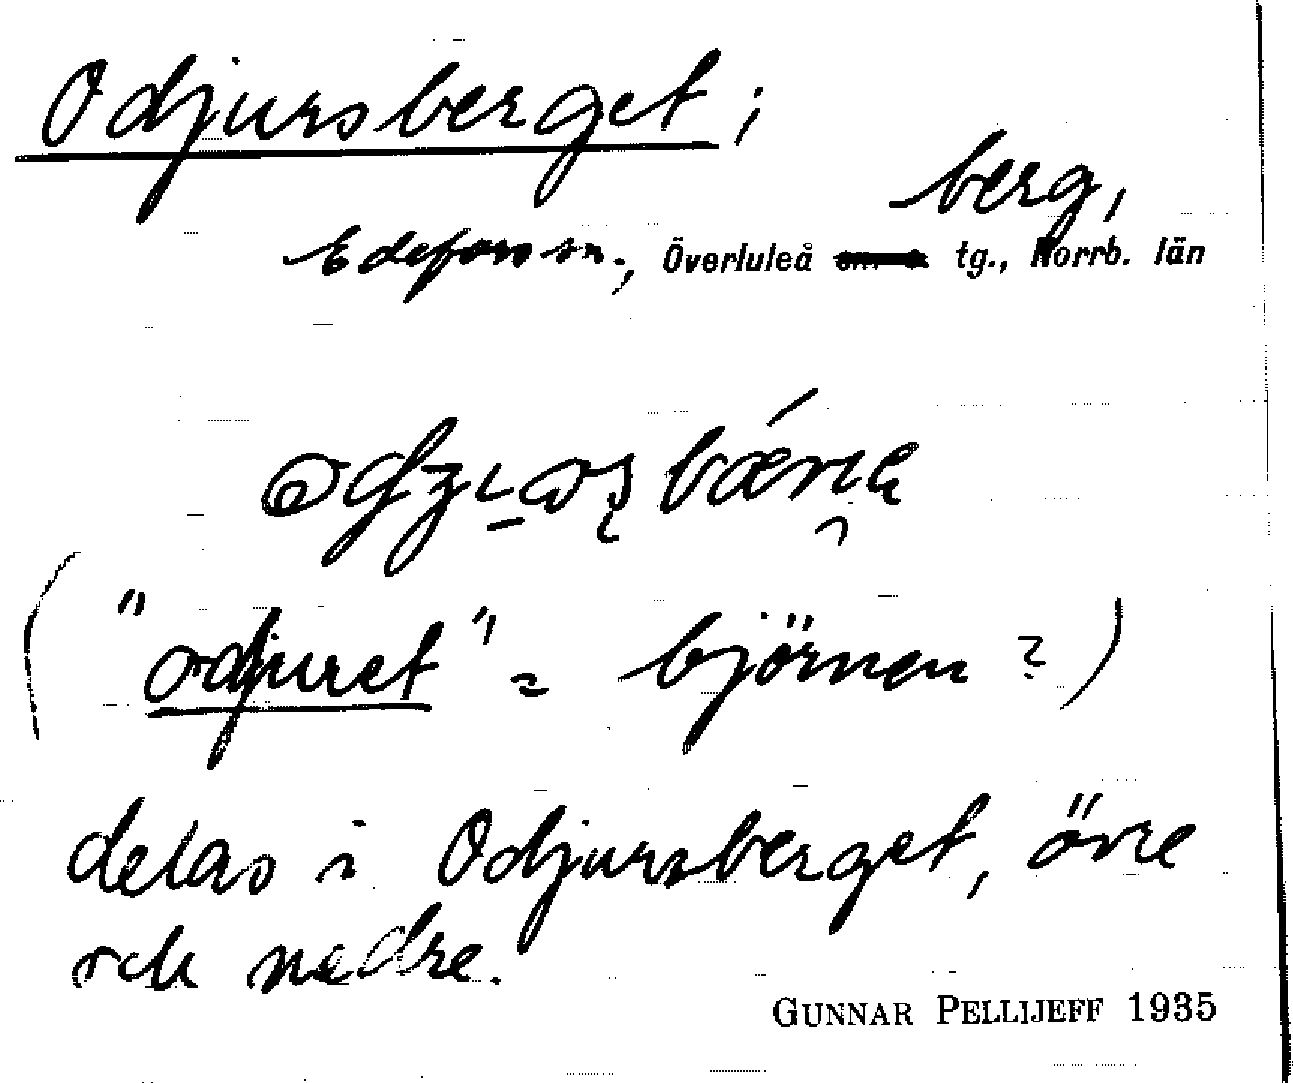 Odjursberget;
berg,
Edefors sn., Överluleå tg., Norrb. län
("odjuret" = björnen?)
delas i Odjursberget, övre
och nedre.
GUNNAR PELLIJEFF 1935